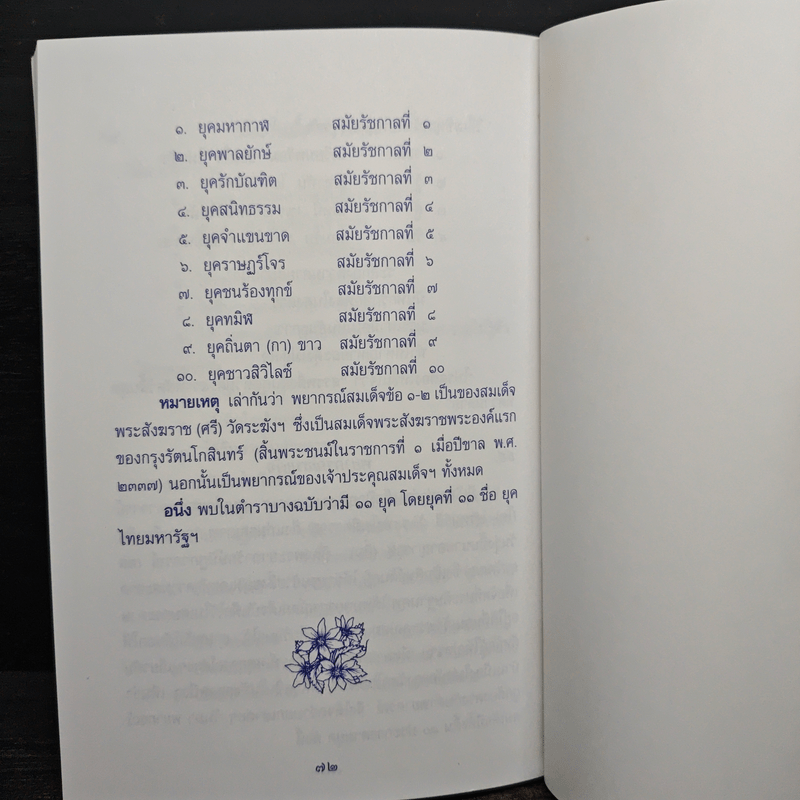 ๑. ยุคมหากาฬ สมัยรัชกาลที่ ๑
๒. ยุคพาลยักษ์ สมัยรัชกาลที่ ๒
๓. ยุครักบัณฑิต สมัยรัชกาลที่ ๓
๔. ยุคสนิทธรรม สมัยรัชกาลที่ ๔
๕. ยุคจำแขนขาด สมัยรัชกาลที่ ๕
๖. ยุคราษฏร์โจร สมัยรัชกาลที่ ๖
๗. ยุคชนร้องทุกข์ สมัยรัชกาลที่ ๗
๘. ยุคทมิฬ สมัยรัชกาลที่ ๘
๙. ยุคถิ่นตา (กา) ขาว สมัยรัชกาลที่ ๙
๑๐. ยุคชาวสิวิไลซ์ สมัยรัชกาลที่ ๑๐
หมายเหตุ เล่ากันว่า พยากรณ์สมเด็จข้อ ๑-๒ เป็นของสมเด็จ
พระสังฆราช (ศรี) วัดระฆังฯ ซึ่งเป็นสมเด็จพระสังฆราชพระองค์แรก
ของกรุงรัตนโกสินทร์ (สิ้นพระชนม์ในราชการที่ ๑ เมื่อปีขาล พ.ศ.
๒๓๓๗) นอกนั้นเป็นพยากรณ์ของเจ้าประคุณสมเด็จฯ ทั้งหมด
อนึ่ง พบในตำราบางฉบับว่ามี ๑๑ ยุค โดยยุคที่ ๑๑ ชื่อ ยุค
ไทยมหารัฐฯ
๗๒